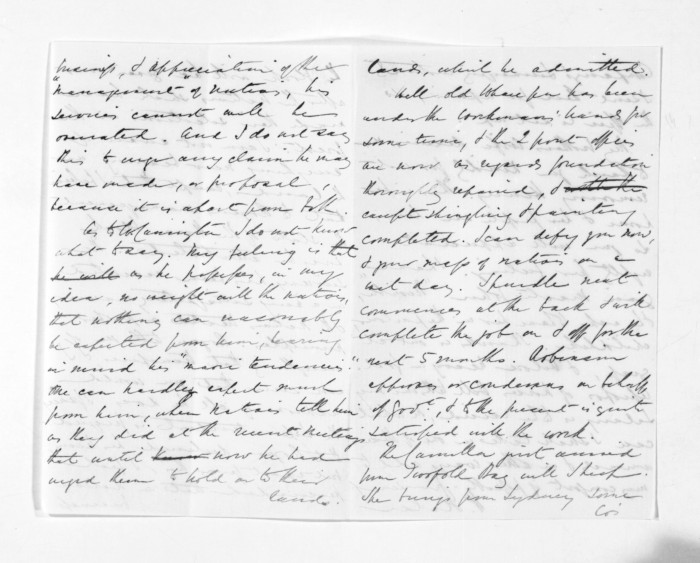 business, & appreciation of the
"management" of natives, his
services cannot well be
overrated. And I do not say
this to urge any claim he may
have made, or proposal,
because it is apart from both
As to Wellington I do not know
what to say. My feeling is that
he will as he possesses, in my
idea, no weight with the natives,
that nothing can reasonably
be expected from him, bearing
in mind his "maori tendencies".
One can hardly expect much
from him, when natives tell him
as they did at the recent meetings
that until now he had
urged them to hold on to their
lands.
lands, which he admitted.
Well old Whare has been
under the workmen's hands for
some time, & the 2 front offices
are now as regards foundation
thoroughly repaired, &
except shingling & painting
completed. I can defy you now,
& your mass of natives on a
wet day. Spindle next
commences at the back &
complete the job on & off for the
next 5 months. Robinson
approves or condemns on behalf
of Govt., & to the present is quite
satisfied with the work.
The Camilla just arrived
from Twofold Bay with sheep.
She brings from Sydney some
Co's